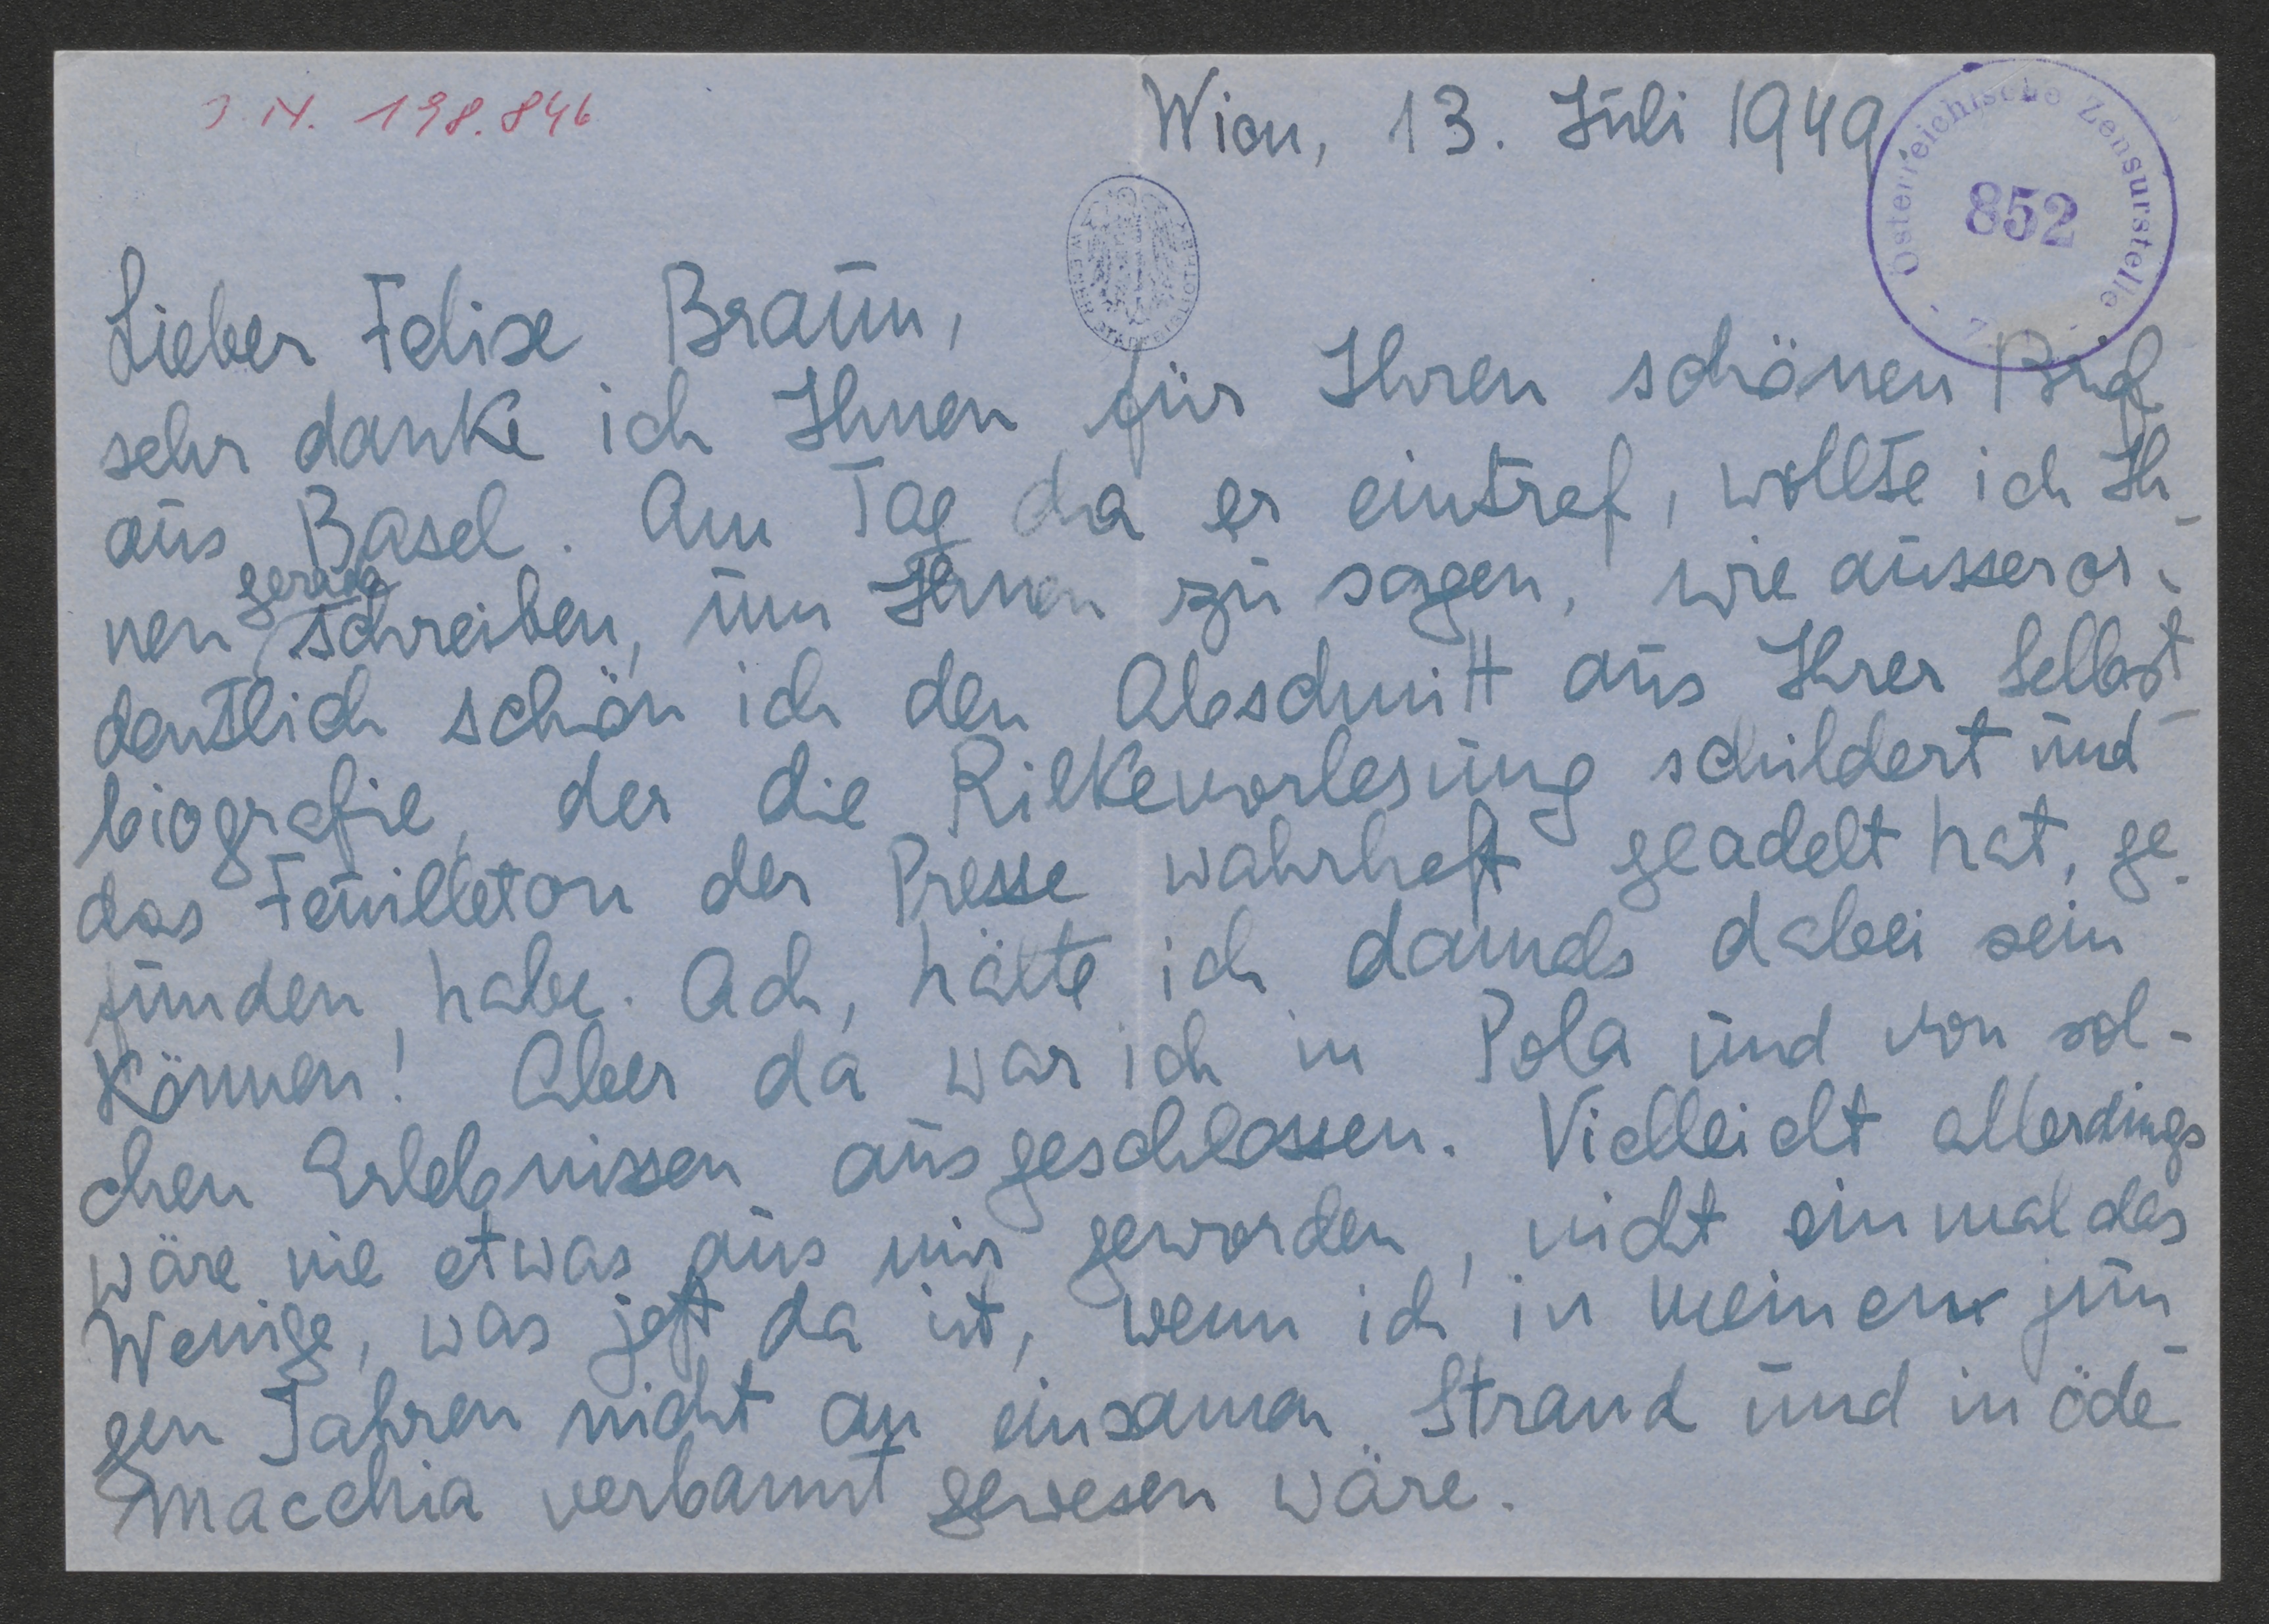 J.N. 198.846
Wien, 13. Juli 1949
Österreichische Zensurstelle
852
WIENER STADTBIBLIOTHEK
Lieber Felix Braun,
sehr danke ich Ihnen für Ihren schönen Brief
aus Basel. Am Tag da er eintraf, wollte ich Ih-
nen gerade schreiben, um Ihnen zu sagen, wie ausseror-
dentlich schön ich den Abschnitt aus Ihrer Selbst-
biografie, der die Rilkevorlesung schildert und
das Feuilleton der Presse wahrhaft geadelt hat, ge-
funden habe. Ach, hätte ich damals dabei sein
können! Aber da war ich in Pola und von sol-
chen Erlebnissen ausgeschlossen. Vielleicht allerdings
wäre nie etwas aus mir geworden, nicht einmal das
Wenige, was jetzt da ist, wenn ich in meinen jun-
gen Jahren nicht an einsamen Strand und in öde
Macchia verbannt gewesen wäre.